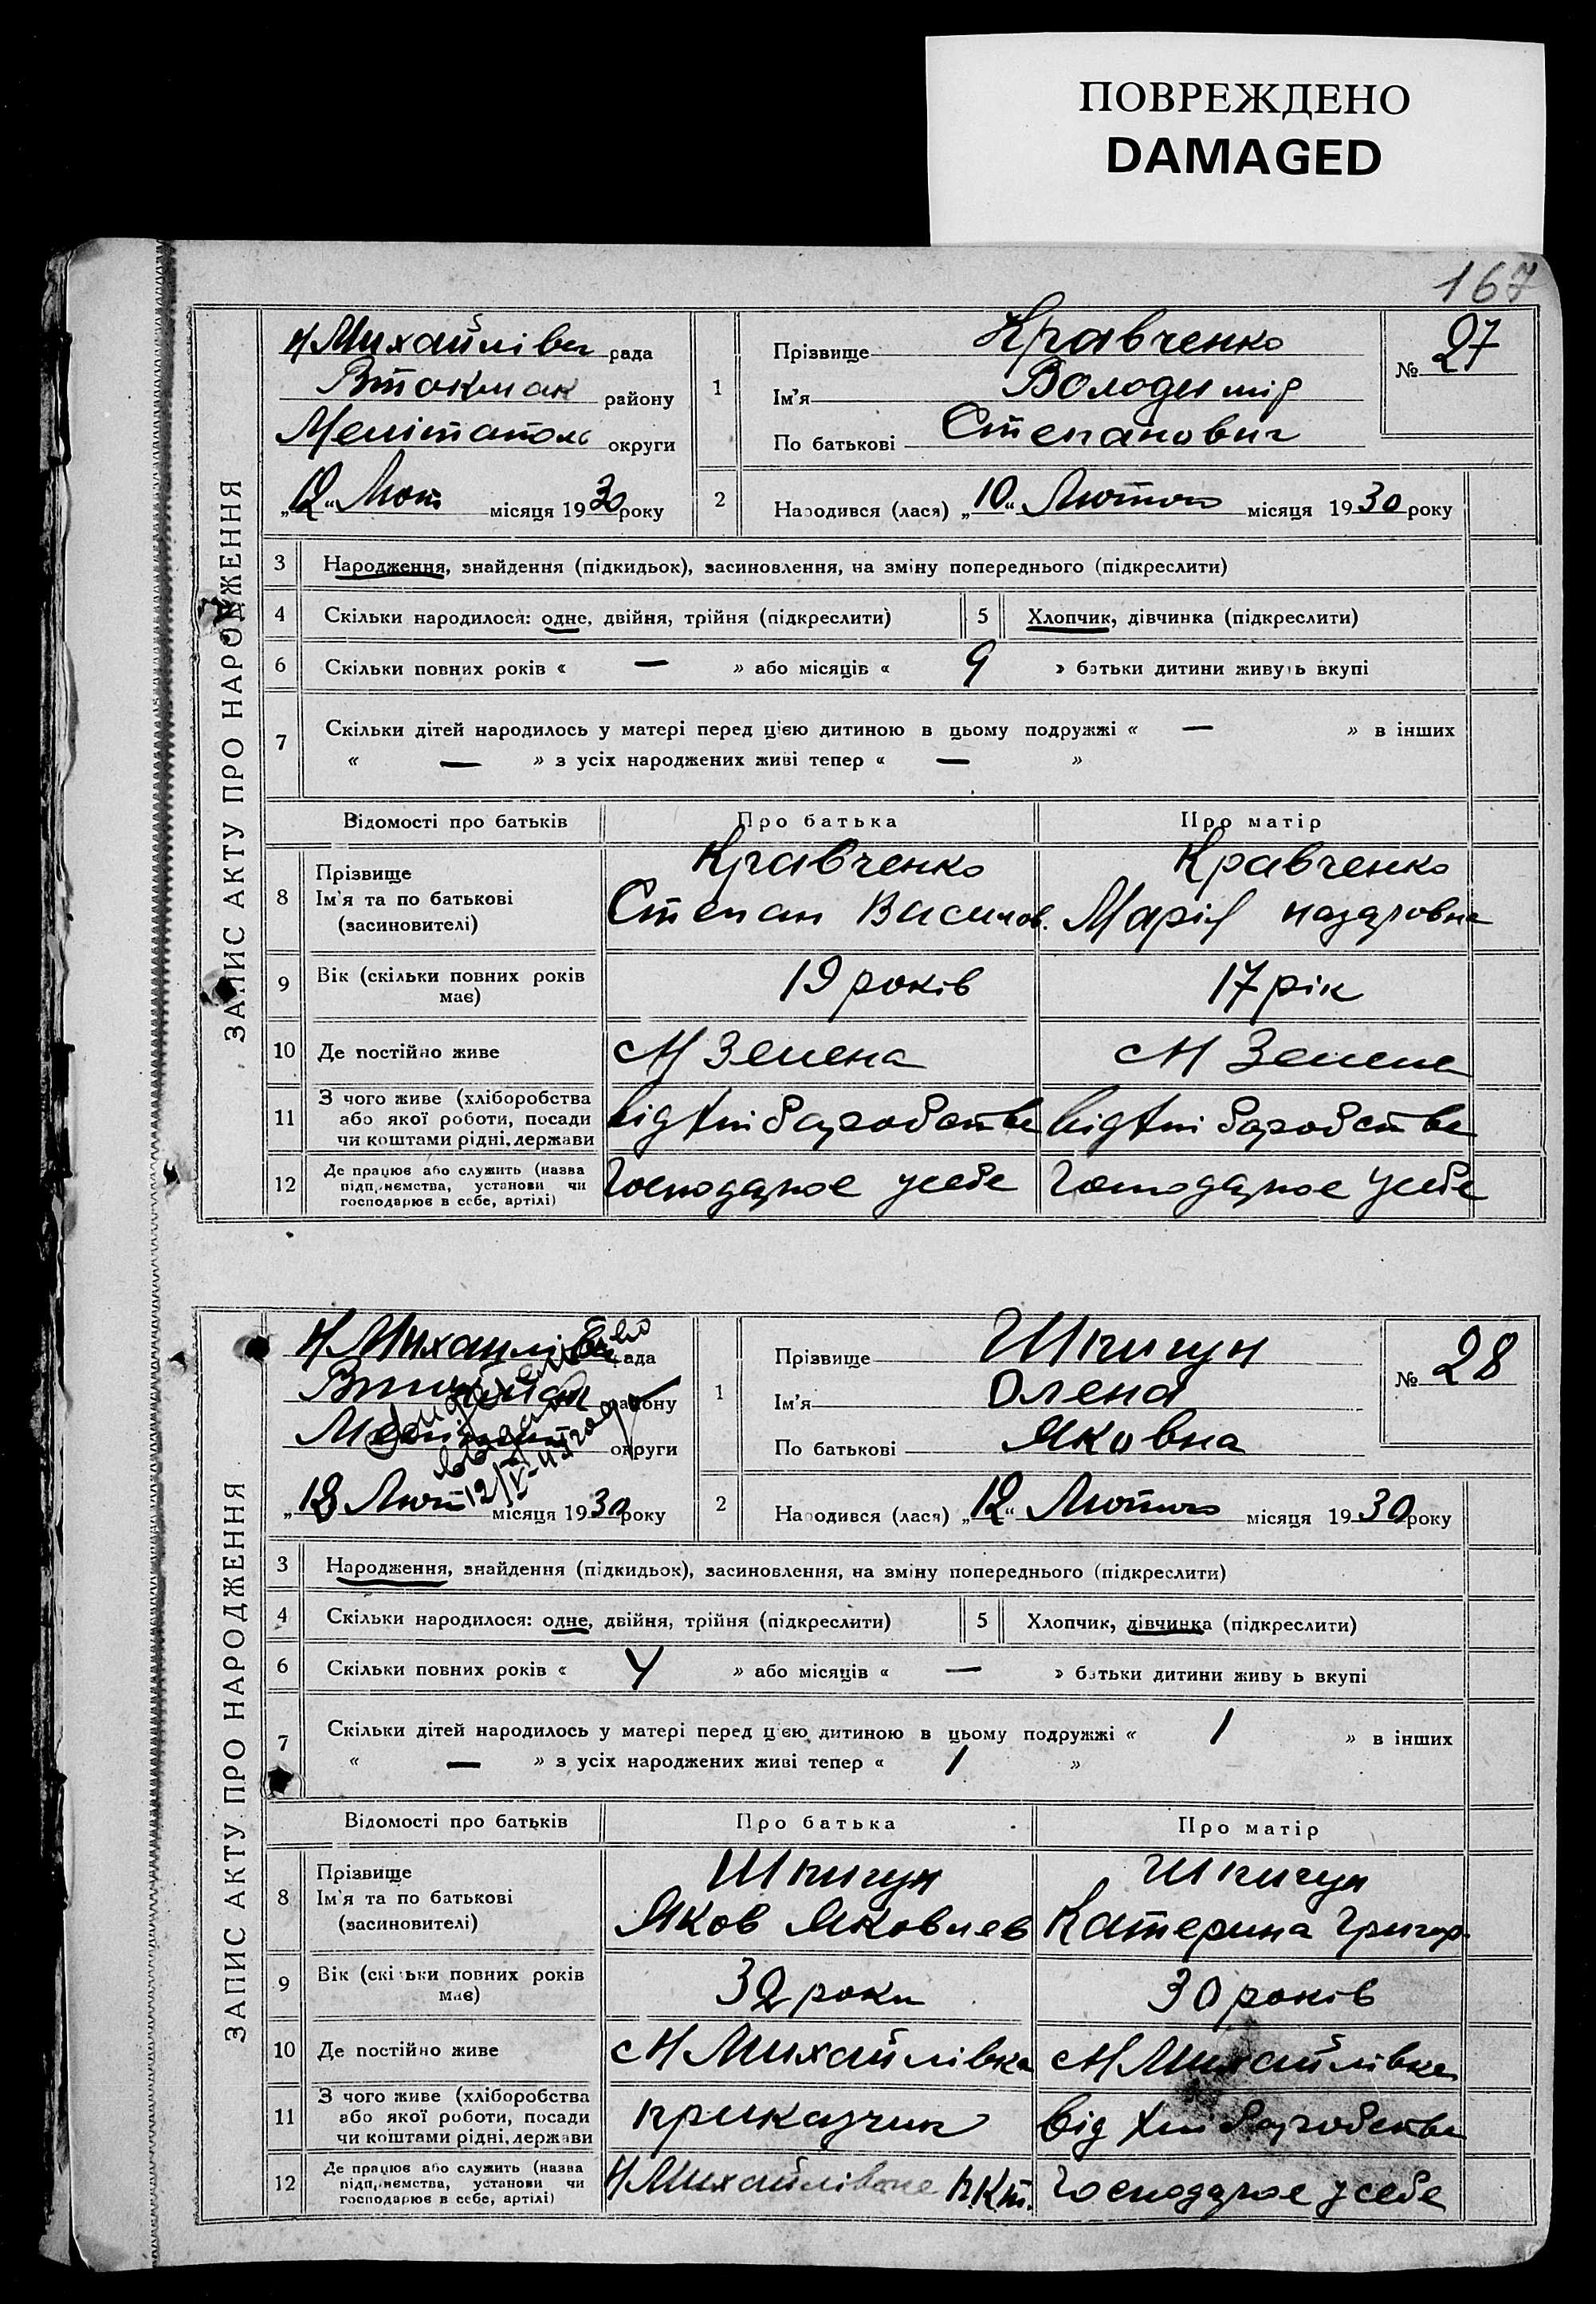 ПОВРЕЖДЕНО
DAMAGED
167
ЗАПИС АКТУ ПРО НАРОДЖЕННЯ
Н Михайлівс рада
Втокмак району
Мелітополь округи
„12“ Лют місяця 1930 року
1
Прізвище Кравченко
Ім'я Володимір
По батькові Степанович
№ 27
2
Народився (лася) „10“ Лютого місяця 1930 року
3 Народження, знайдення (підкидьок), засиновлення, на зміну попереднього (підкреслити)
4 Скільки народилося: одне, двійня, трійня (підкреслити) 5 Хлопчик, дівчинка (підкреслити)
6 Скільки повних років « — » або місяців « 9 » батьки дитини живуть вкупі
7 Скільки дітей народилось у матері перед цією дитиною в цьому подружжі « — » в інших
« — » з усіх народжених живі тепер « — »
Відомості про батьків Про батька Про матір
8 Прізвище Кравченко Кравченко
Ім'я та по батькові Степан Васильов. Марія Назаровна
(засиновителі)
9 Вік (скільки повних років має) 19 років 17 рік
10 Де постійно живе с Н Зелена с Н Зелена
11 З чого живе (хліборобства
або якої роботи, посади від хліборобства від хліборобства
чи коштами рідні, держави
12 Де працює або служить (назва
підприємства, установи чи Господарює у себе Господарює у себе
господарює в себе, артілі)
ЗАПИС АКТУ ПРО НАРОДЖЕННЯ
Н Михайлівс рада
Втокмак району
Меліт округи
12/V-
„18 Лют місяця 1930 року
1
Прізвище Шпигун
Ім'я Олена
По батькові Яковна
№ 28
2
Народився (лася) „12“ Лютого місяця 1930 року
3 Народження, знайдення (підкидьок), засиновлення, на зміну попереднього (підкреслити)
4 Скільки народилося: одне, двійня, трійня (підкреслити) 5 Хлопчик, дівчинка (підкреслити)
6 Скільки повних років « 4 » або місяців « — » батьки дитини живу ь вкупі
7 Скільки дітей народилось у матері перед цією дитиною в цьому подружжі « 1 » в інших
« — » з усіх народжених живі тепер « 1 »
Відомості про батьків Про батька Про матір
8 Прізвище Шпигун Шпигун
Ім'я та по батькові Яков Яковлев Катерина Григор.
(засиновителі)
9 Вік (скільки повних років має) 32 роки 30 років
10 Де постійно живе с Н Михайлівка с Н Михайлівка
11 З чого живе (хліборобства
або якої роботи, посади приказчик від хліборобства
чи коштами рідні, держави
12 Де працює або служить (назва
підприємства, установи чи Н Михайлівське Господарює у себе
господарює в себе, артілі)